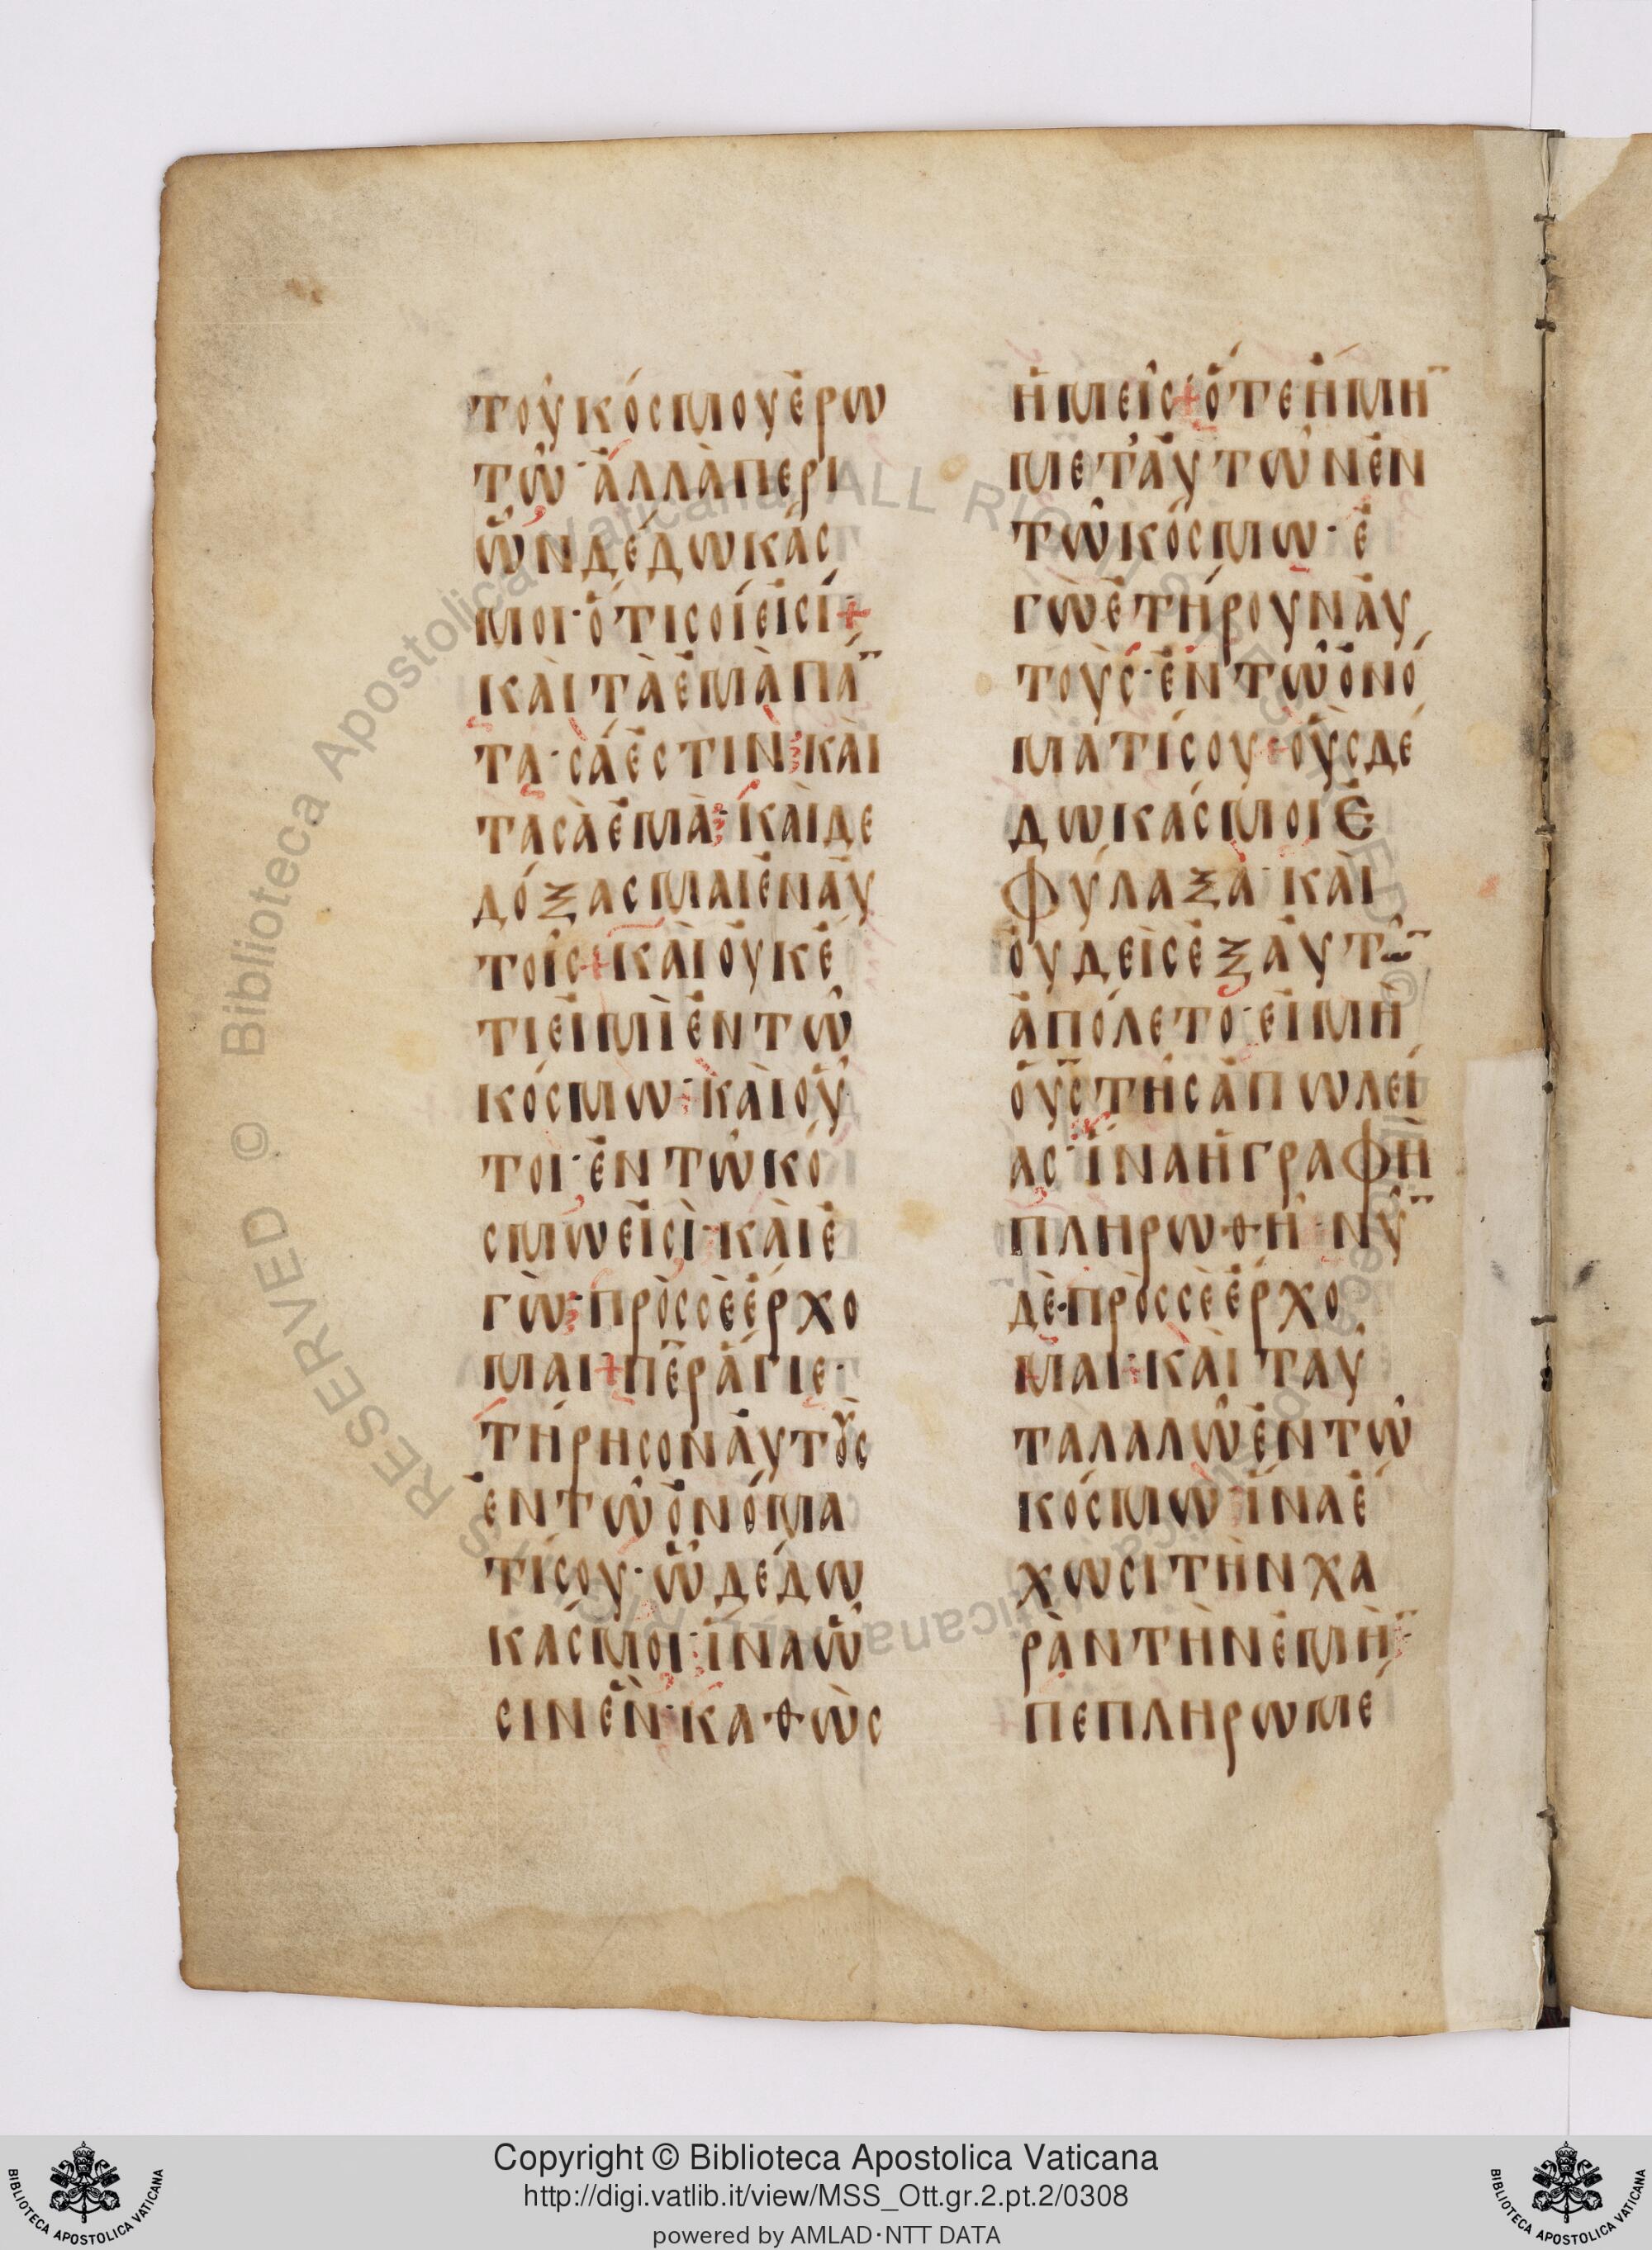 τοῦ κόσμου ἐρω
τῶ· ἀλλὰ περὶ
ὧν δέδωκάς
μοι· ὅτι σοί εἰσί +
καὶ τὰ ἐμὰ πά̅
τα· σά ἐστιν· καὶ
τὰ σὰ ἐμά· καὶ δε
δόξασμαι ἐν αὐ
τοῖς + καὶ οὐκέ
τι εἰμὶ ἐν τῶ
κόσμω· καὶ οὗ
τοι· ἐν τῶ κό
σμω εἰσὶ· καὶ ἐ
γὼ· πρὸς σὲ ἔρχο
μαι + π̅ε̅ρ ἅγιε·
τήρησον αὐτοὺς
ἐν τῶ ὀνόμα
τί σου· ὧ δέδω
κάς μοι· ἵνα ὦ
σιν ἕν· καθὼς
ἡμεῖς + ὅτε ἤμη̅
μετ' αὐτῶν ἐν
τῶ κόσμω· ἐ
γὼ ἐτήρουν αὐ
τούς· ἐν τῶ ὀνό
ματί σου + οὓς δέ
δωκάς μοι ἐ
φύλαξα· καὶ
οὐδεὶς ἐξ αὐτῶ̅
ἀπόλετο· εἰ μὴ
ὁ υ̅ς τῆς ἀπωλεί
ας· ἵνα ἡ γραφὴ
πληρωθῆ· νῦ̅
δὲ· πρὸς σὲ ἔρχο
μαι· καὶ ταῦ
τα λαλῶ ἐν τῶ
κόσμω· ἵνα ἔ
χωσι τὴν χα
ρὰν τὴν ἐμὴ̅·
πεπληρωμέ
© Biblioteca Apostolica Vaticana ALL RIGHTS RESERVED
Copyright © Biblioteca Apostolica Vaticana
http://digi.vatlib.it/view/MSS_Ott.gr.2.pt.2/0308
powered by AMLAD·NTT DATA
BIBLIOTECA APOSTOLICA VATICANA
BIBLIOTECA APOSTOLICA VATICANA